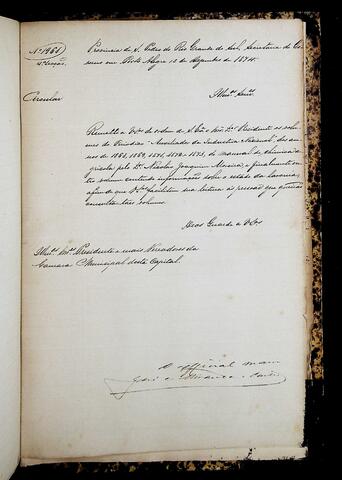 Nº 1961
Provincia de S. Pedro do Rio Grande do Sul, Secretaria do Go-
4ª Secção.
verno em Porto Alegre 12 de Dezembro de 1874.
Circular
Illmos. Snres.
Remetto a VSas. de ordem de S. Exa. o Snr. Dr. Presidente os volu-
mes do Periodico Auxiliador da Industria Nacional, dos an-
nos de 1861, 1869, 1871, 1872 e 1873, do manual de chimica a-
gricola pelo Dr. Nicolau Joaquim Moreira, e finalmente ou-
tro volume contendo informações sobre o estado da lavoura,
afim de que VSas. facilitem sua leitura ás pessôas que
consultar taes volumes.
Deos Guarde a VSas.
Illmos. Snres. Presidente e mais Vereadores da
Camara Municipal desta Capital.
O official maior